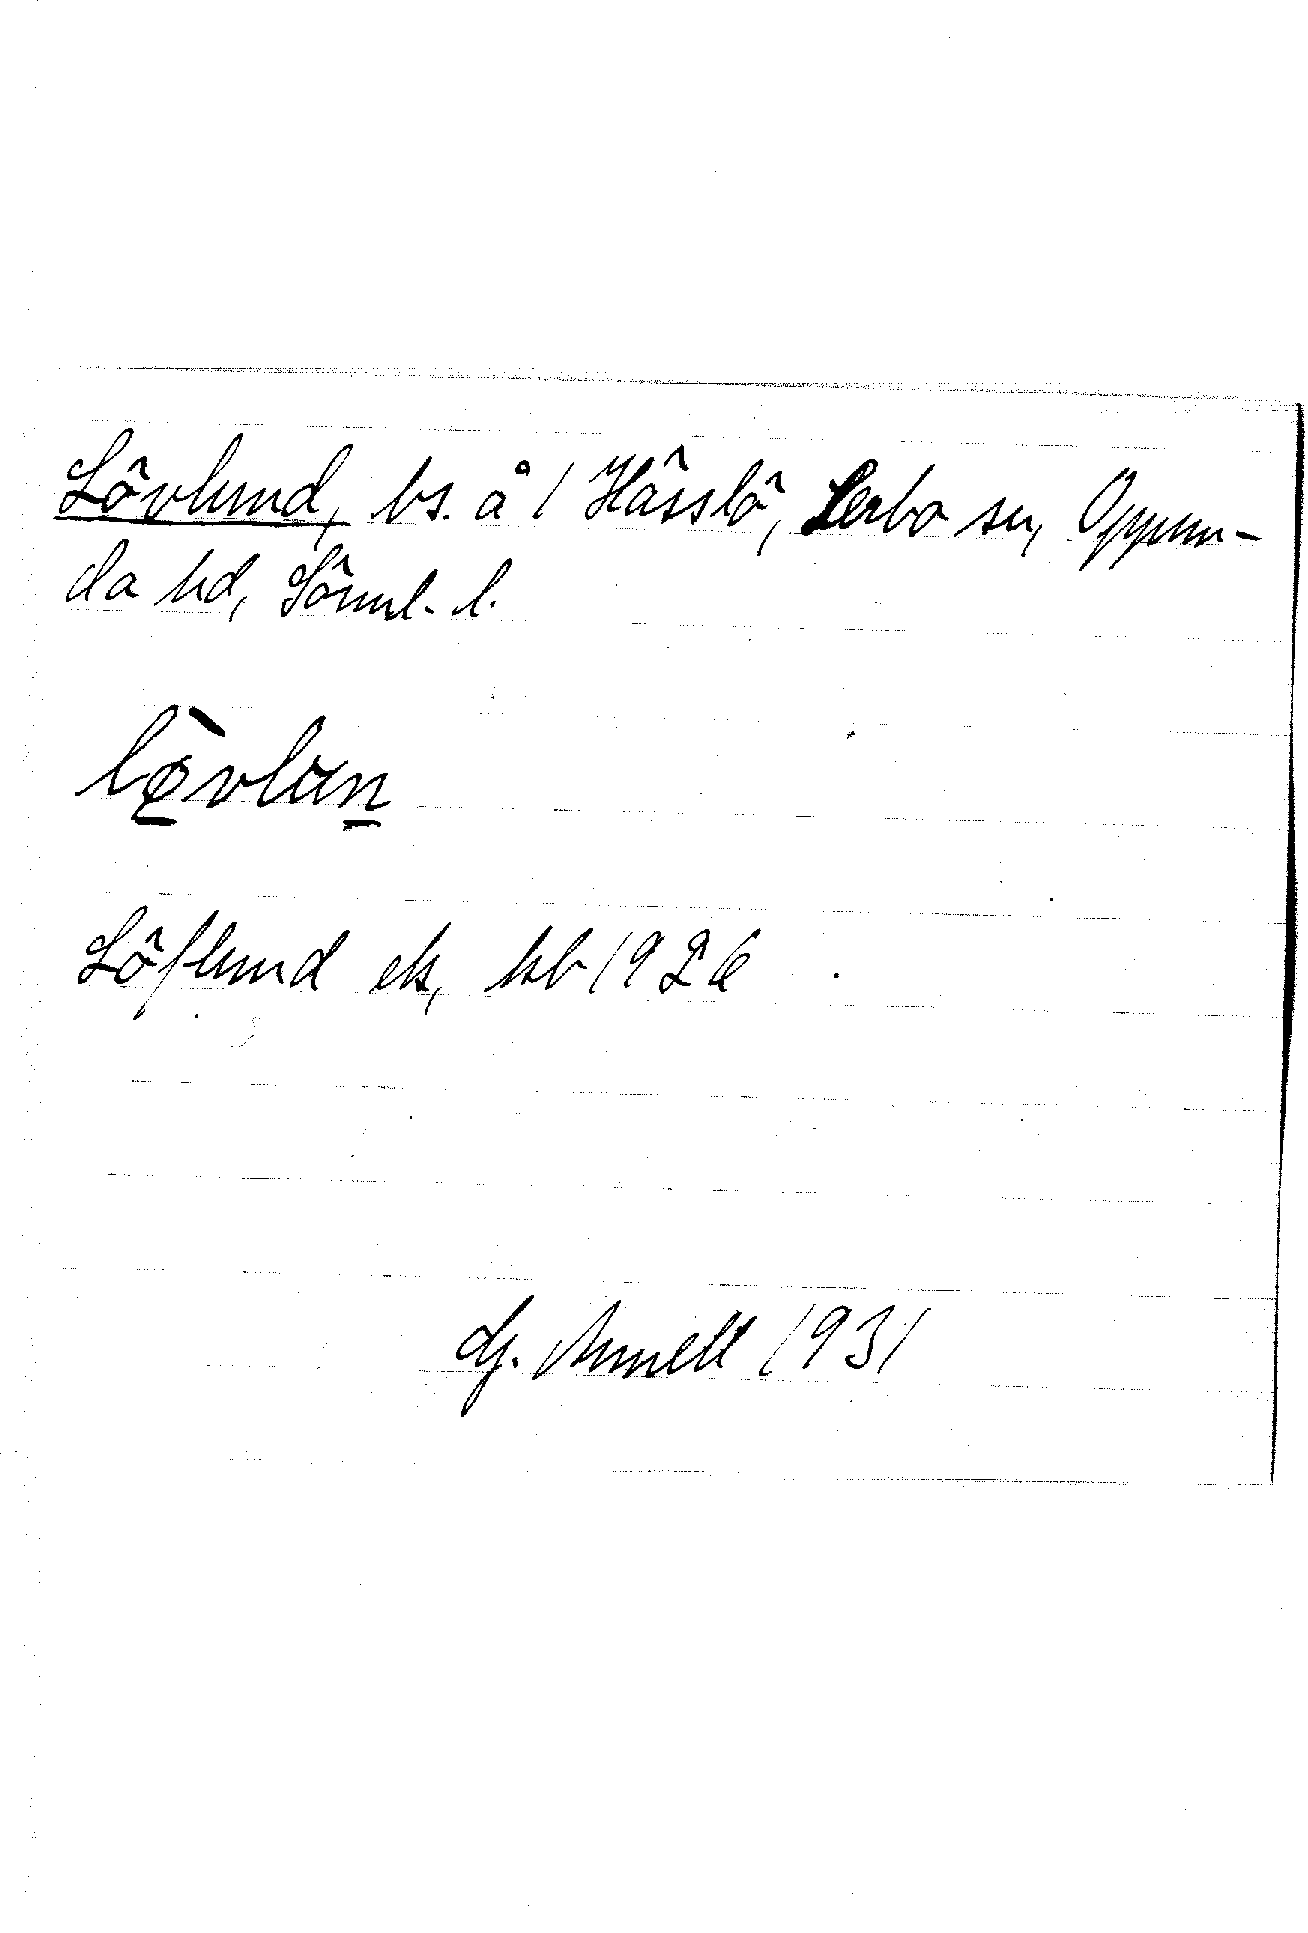 Lövlund, bs. å 1 Hässlö, Lerbo sn, Oppun-
da hd, Sörml. l.
lö̀vlun
Löflund ek, kb 1926
G. Annell 1931